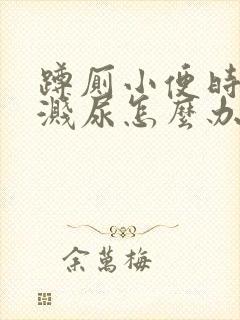 蹲厕小便时
溅尿怎麽办
余萬梅